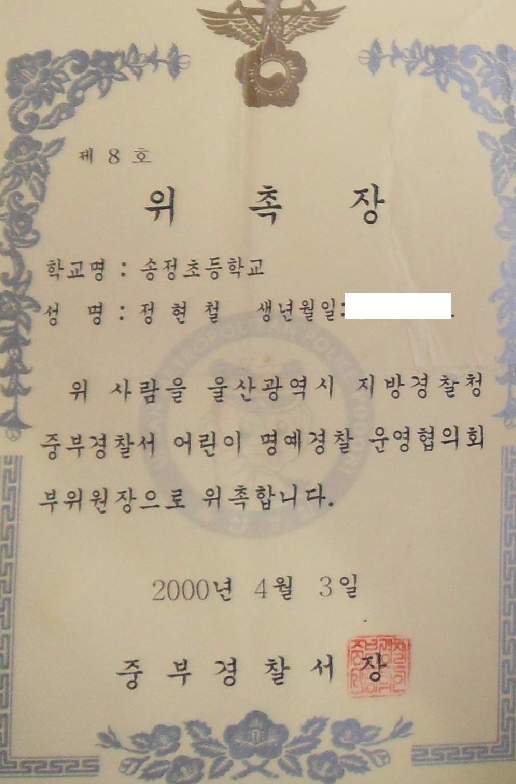 제 8 호
위 촉 장
학교명 : 송정초등학교
성 명 : 정현철 생년월일:
위 사람을 울산광역시 지방경찰청
중부경찰서 어린이 명예경찰 운영협의회
부위원장으로 위촉합니다.
2000년 4월 3일
중부경찰서장